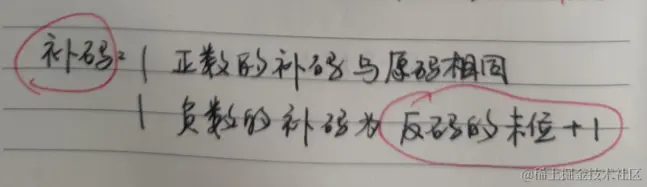 补码：| 正数的补码与原码相同
| 负数的补码为反码的末位+1
@稀土掘金技术社区